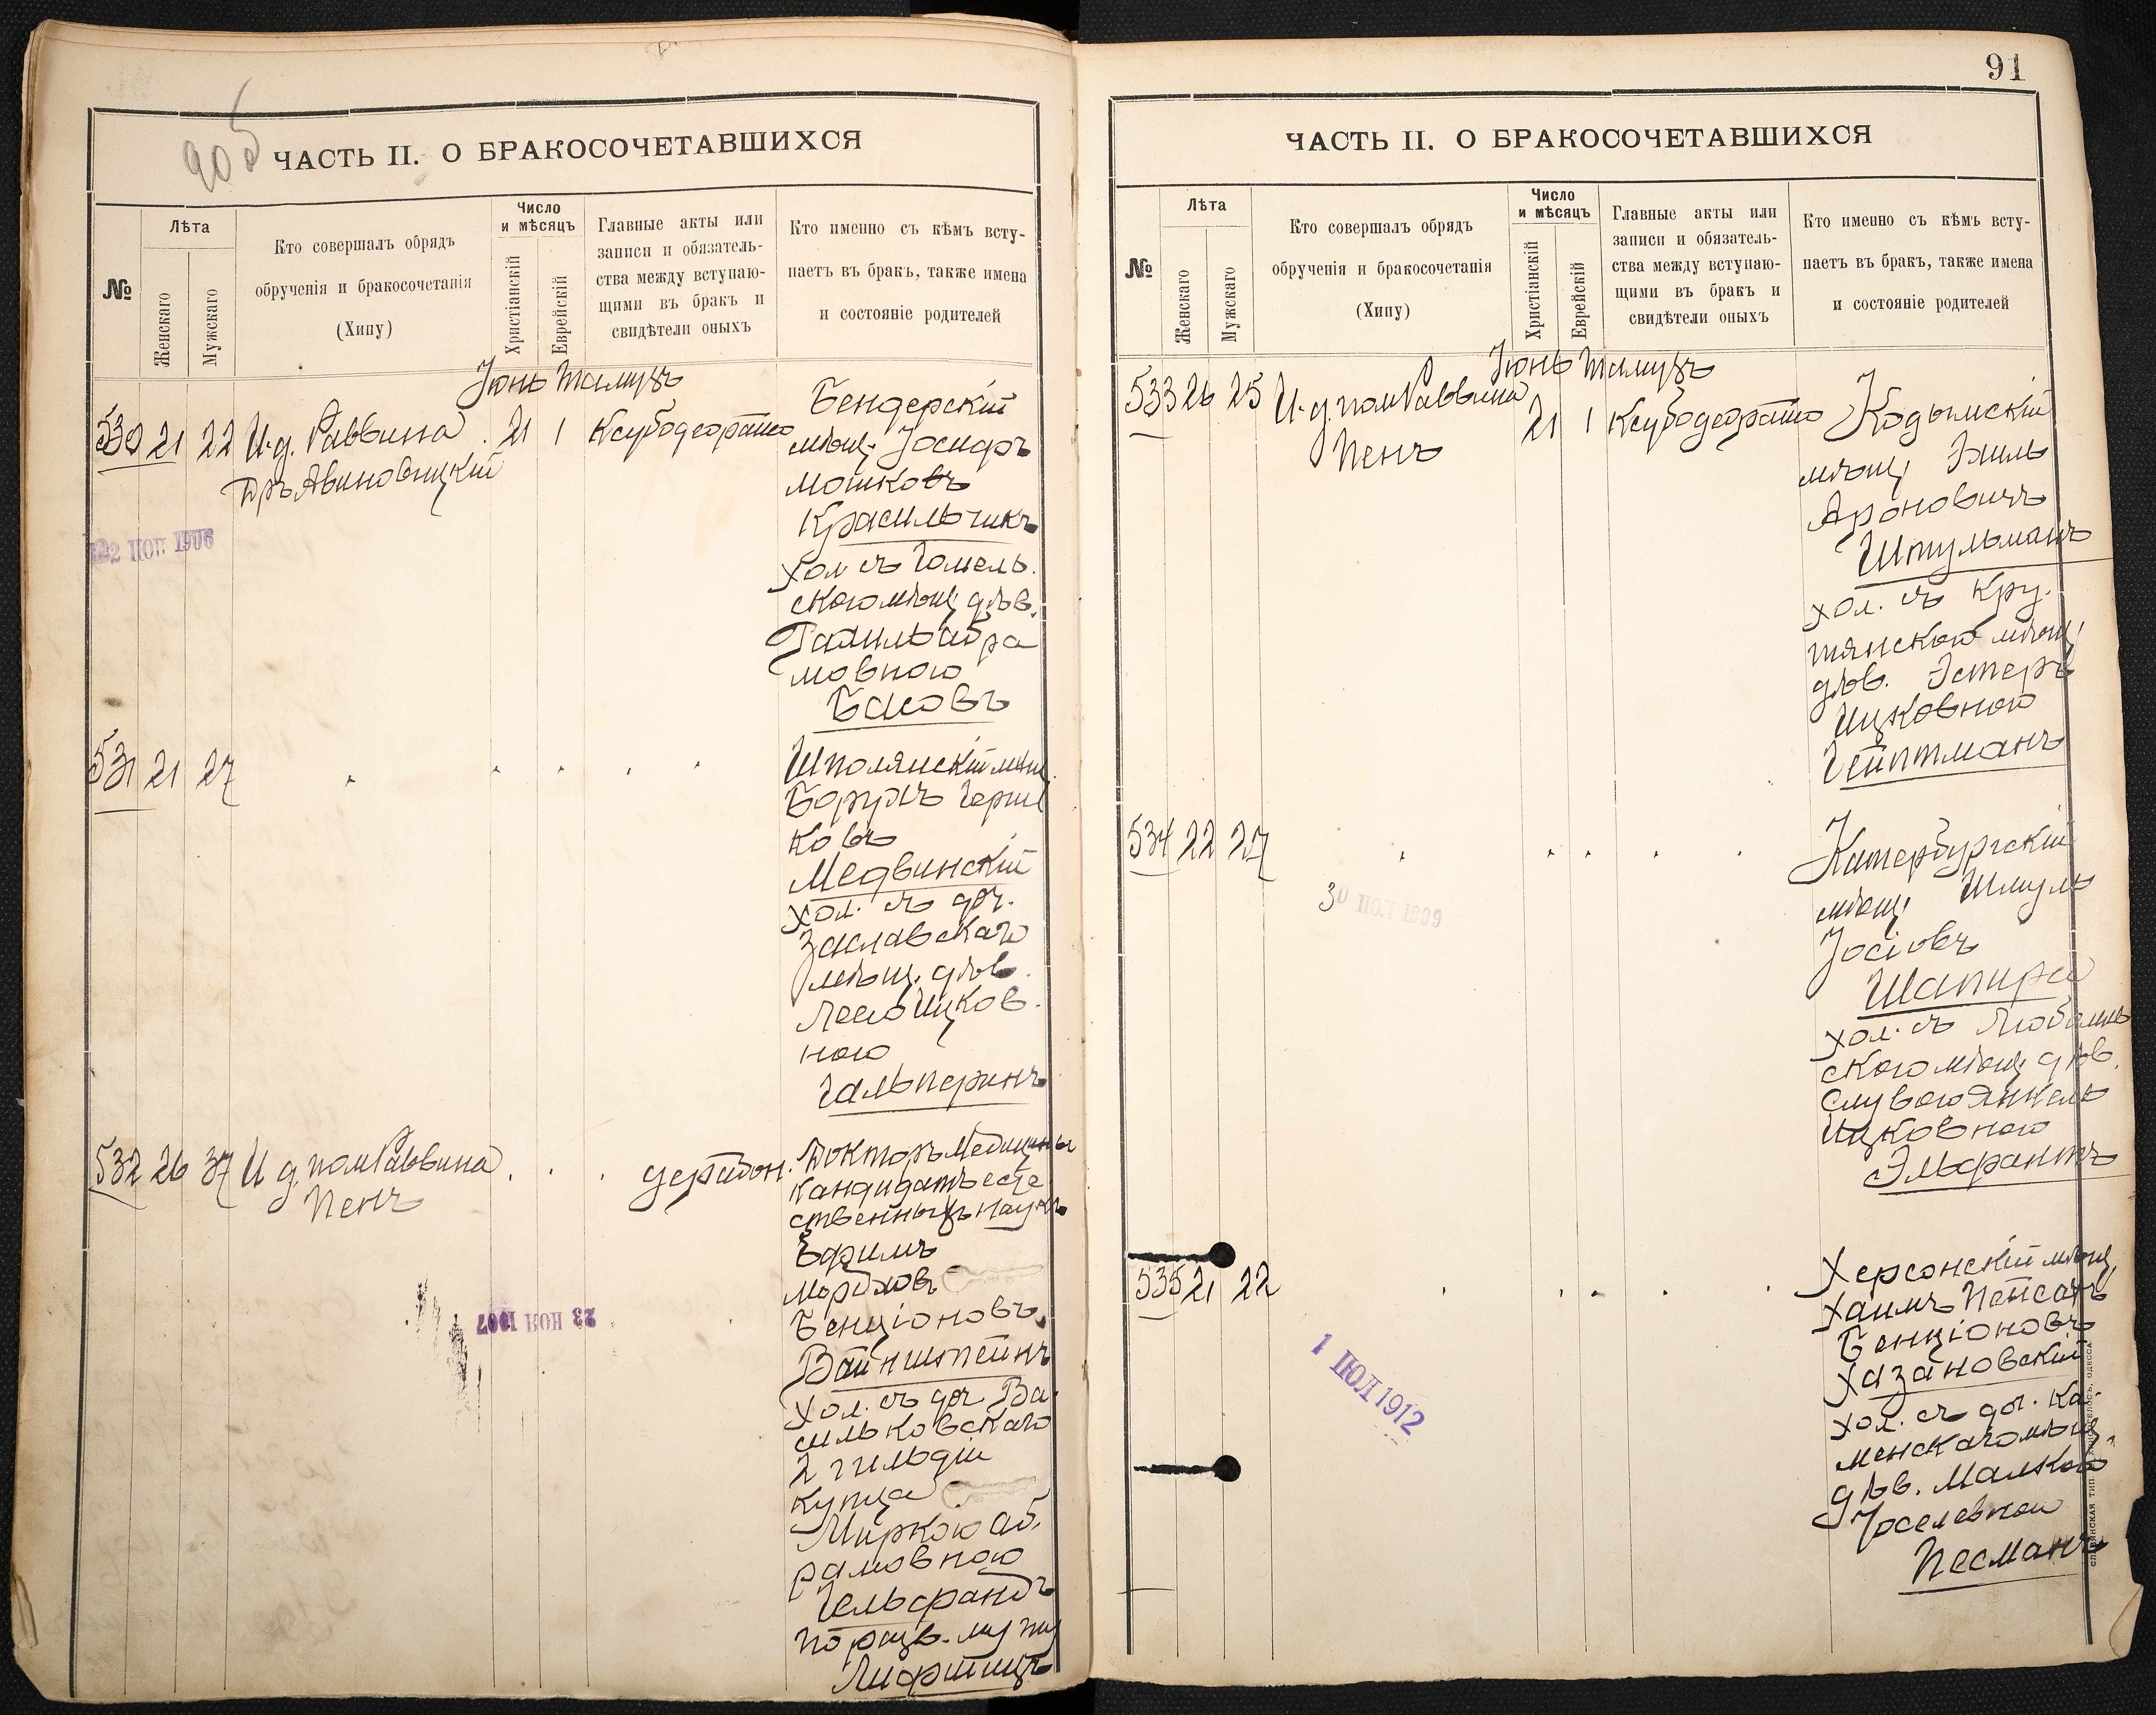 90б
ЧАСТЬ II. О БРАКОСОЧЕТАВШИХСЯ
№
Лѣта
Женскаго
Мужскаго
Кто совершалъ обрядъ
обрученія и бракосочетанія
(Хипу)
Число
и мѣсяцъ
Христіанскій
Еврейскій
Главные акты или
записи и обязатель-
ства между вступаю-
щими въ бракъ и
свидѣтели оныхъ
Кто именно съ кѣмъ всту-
паетъ въ бракъ, также имена
и состояніе родителей
Іюнь Тамузъ
530 21 22 И.д. Раввина 21 1
Дръ Авиновицкій
Бендерскій
мѣщ. Іосифъ
Мошковъ
Красильчикъ
хол съ Гомель.
скою мѣщ. дѣв.
Абра
мовною
Басовъ
531 21 27
Шполянскій мѣщ.
Борухъ Герш
ковъ
Медвинскій
хол. съ доч.
Заславскаго
мѣщ. дѣв.
Леею Ицков.
ною
Гальперинъ
532 26 37 И д помРаввина
Пенъ
Докторъ Медицины
Кандидатъ есте
ственныхъ наукъ
Ефимъ
Мордховъ
Бенціоновъ
Вайнштейнъ
хол. съ доч Ва
сильковскаго
2 гильдіи
купца
Миркою Аб.
рамовною
Гельфандъ
по разв. мужу
Лифшицъ
22 НОЯ 1906
23 НОЯ 1907
91
ЧАСТЬ II. О БРАКОСОЧЕТАВШИХСЯ
№
Лѣта
Женскаго
Мужскаго
Кто совершалъ обрядъ
обрученія и бракосочетанія
(Хипу)
Число
и мѣсяцъ
Христіанскій
Еврейскій
Главные акты или
записи и обязатель-
ства между вступаю-
щими въ бракъ и
свидѣтели оныхъ
Кто именно съ кѣмъ всту-
паетъ въ бракъ, также имена
и состояніе родителей
Іюнь Тамузъ
533 26 25 И.д. помРаввина 21 1
Пенъ
Кодымскій
мѣщ Эмиль
Ароновичъ
Штульманъ
хол. съ Кру.
тянской мѣщ.
дѣв. Эстеръ
Ицковною
Гейптманъ
534 22 27
Катербургскій
мѣщ. Шмуль
Іосіовъ
Шапира
хол. съ
скою мѣщ дѣв.
Слувою Янкель
Ицковною
Эльфантъ
535 21 22
Херсонскій мѣщ
Хаимъ
Бенціоновъ
Хазановскій
хол. съ доч. Ка-
менскаго мѣщ.
дѣв. Малкою
Іоселевною
Песманъ
1 ІЮЛ 1912